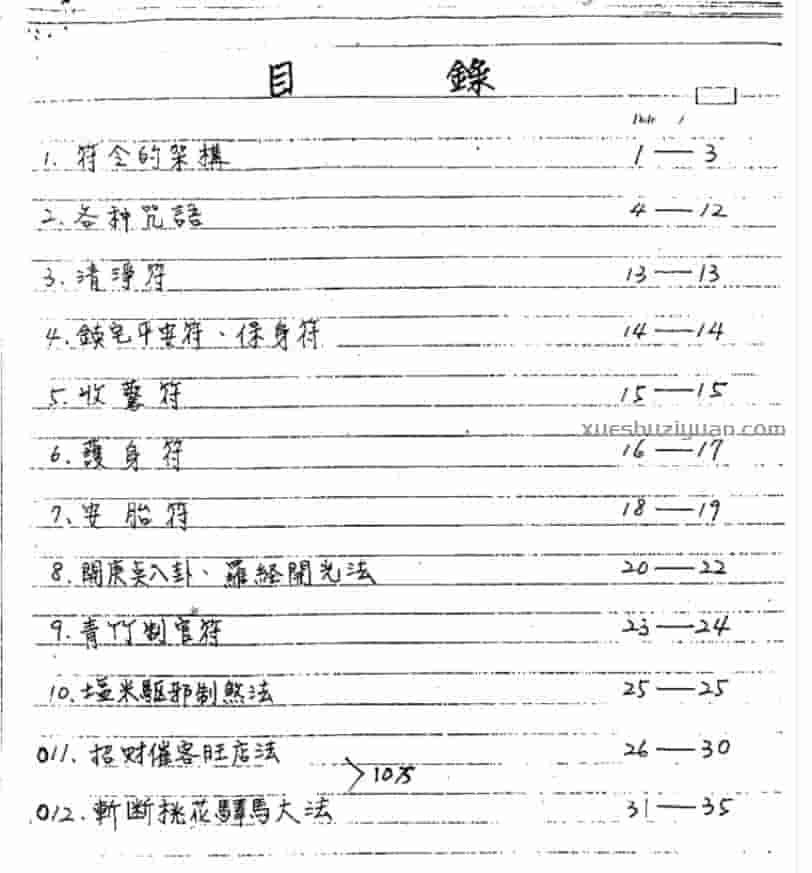 目 錄
Date /
1. 符令的架構 1—3
2. 各种咒語 4—12
3. 清淨符 13—13
4. 鎮宅平安符、保身符 14—14
5. 收驚符 15—15
xueshuziyuan.com
6. 護身符 16—17
7. 安胎符 18—19
8. 開庚矣八卦、羅経開光法 20—22
9. 青竹制官符 23—24
10. 塩米駆邪制煞法 25—25
011. 招财催客旺店法 26—30
012. 斬断桃花驛馬大法 31—35